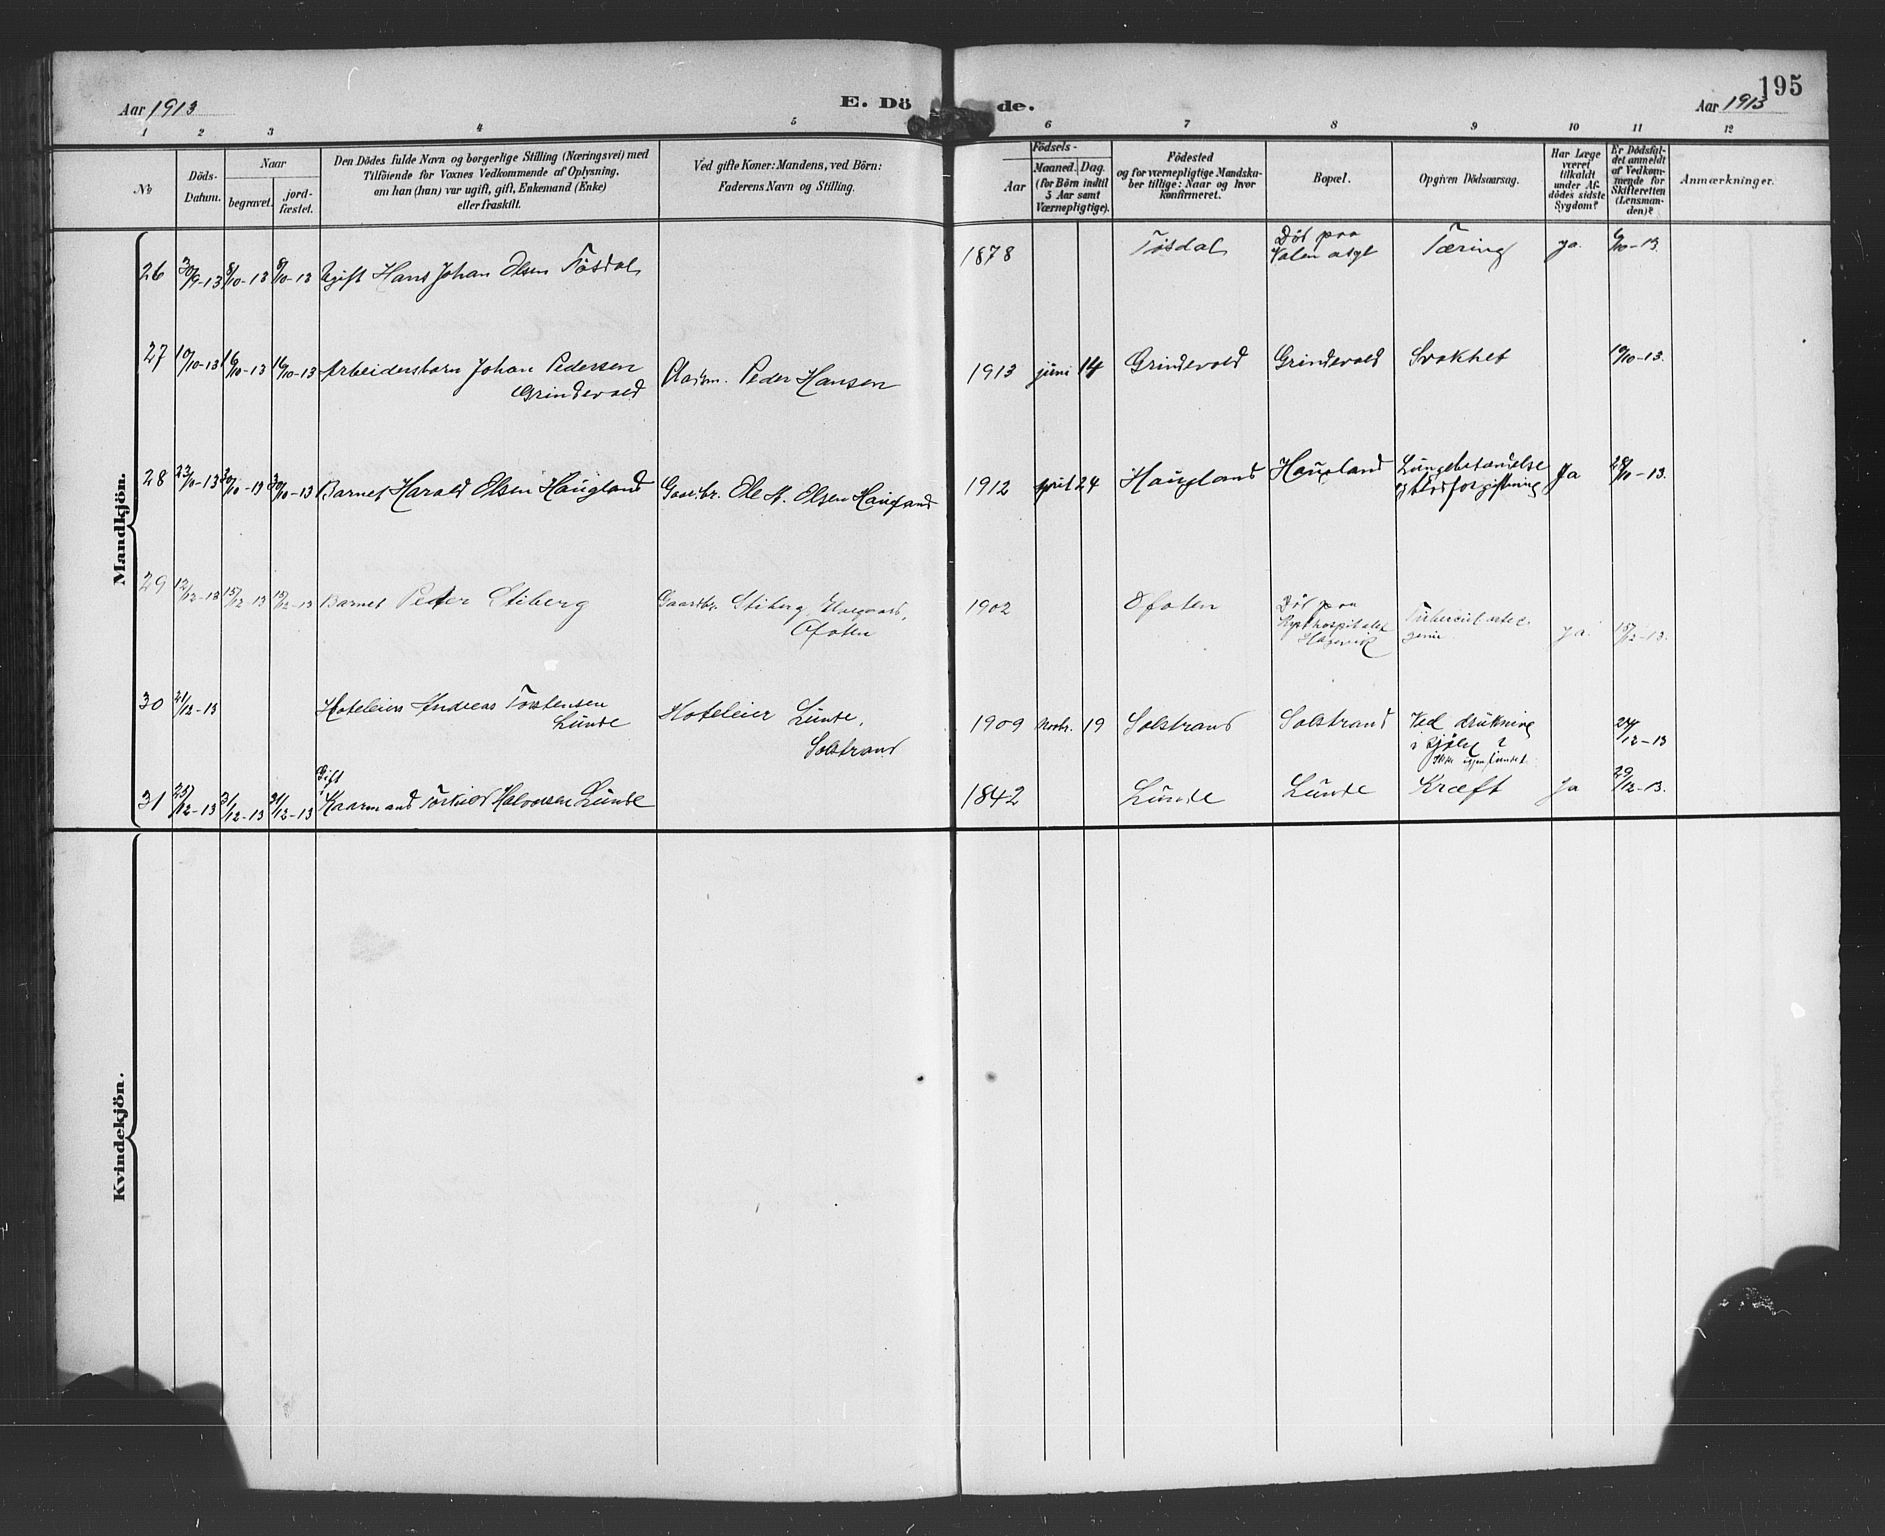 195
Aar 1913
E. Dö
de.
Aar 1913
1 2 3 4 5 6 7 8 9 10 11 12
No
Döds-
Datum.
Naar
begravet.
jord-
fæstet.
Den Dödes fulde Navn og borgerlige Stilling (Næringsvei) med
Tilföiende for Voxnes Vedkommende af Oplysning,
om han (hun) var ugift, gift, Enkemand (Enke)
eller fraskilt.
Ved gifte Koner: Mandens, ved Börn:
Faderens Navn og Stilling.
Födsels-
Aar
Maaned.
Dag.
(for Börn indtil
5 Aar samt
Værnepligtige).
Födested
og for værnepligtige Mandska-
ber tillige: Naar og hvor
konfirmeret.
Bopæl.
Opgiven Dödsaarsag.
Har Læge
været
tilkaldt
under Af-
dödes sidste
Sygdom?
Er Dödsfal-
det anmeldt
af Vedkom-
mende for
Skifteretten
(Lensman-
den)?
Anmærkninger.
Mandkjön.
26 30/9-13 8/10-13 8/10-13 Ugift Hans Johan Olsen Tøsdal 1878 Tøsdal Død paa Tæring ja 6/10-13.
Valen asyl
27 10/10-13 16/10-13 16/10-13 Arbeidersbarn Johan Pedersen Pladsm. Peder Hansen 1913 juni 14 Grindevold Grindevold Svakhet 10/10-13.
Grindevold
28 23/10-13 30/10-13 30/10-13 Barnet Harald Olsen Haugland Gaardbr. Ole M. Olsen Haugland 1912 april 24 Haugland Haugland Lungebetændelse Ja 28/10-13.
og blodforgiftning
29 12/12-13 15/12-13 15/12-13 Barnet Peder Stiberg Gaardbr. Stiberg, 1902 Ofoten Død paa ja 15/12-13.
Ofoten
Kysthospitalet
Hagevik
30 21/12-13 Hoteleiers Andreas Torstensen Hoteleier Lunde, 1909 Novbr. 19 Solstrand Solstrand Ved drukning 24/12-13
Lunde Solstrand i sjøen
Ikke igjenfundet.
Gift
31 25/12-13 31/12-13 31/12-13 Kaarmand Torkild Halvorsen Lunde 1842 Lunde Lunde Kræft Ja 29/12-13.
Kvindekjön.